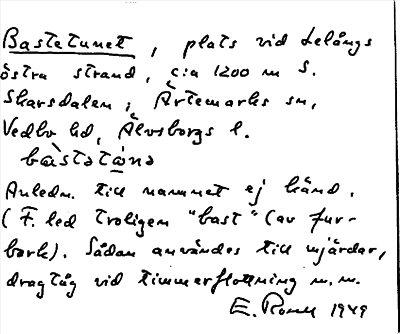 Bastetunet, plats vid Lelångs
östra strand, c:a 1200 m S.
Skarsdalen, Ärtemarks sn,
Vedbo hd, Älvsborgs l.
bàstətùnə
Anledn. till namnet ej känd.
(F. led troligen "bast" (av fur-
bark). Sådan användes till mjärdar,
dragtåg vid timmerflottning m.m.
E. 1949